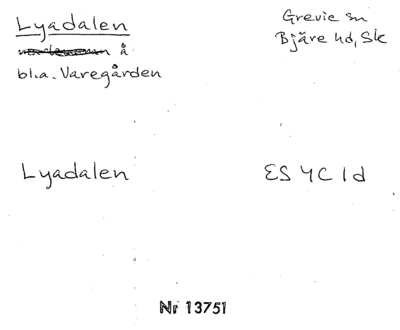 Lyadalen
Grevie sn
Bjäre hd, Sk
å
bl.a. Varegården
Lyadalen
ES 4C 1d
Nr 13751